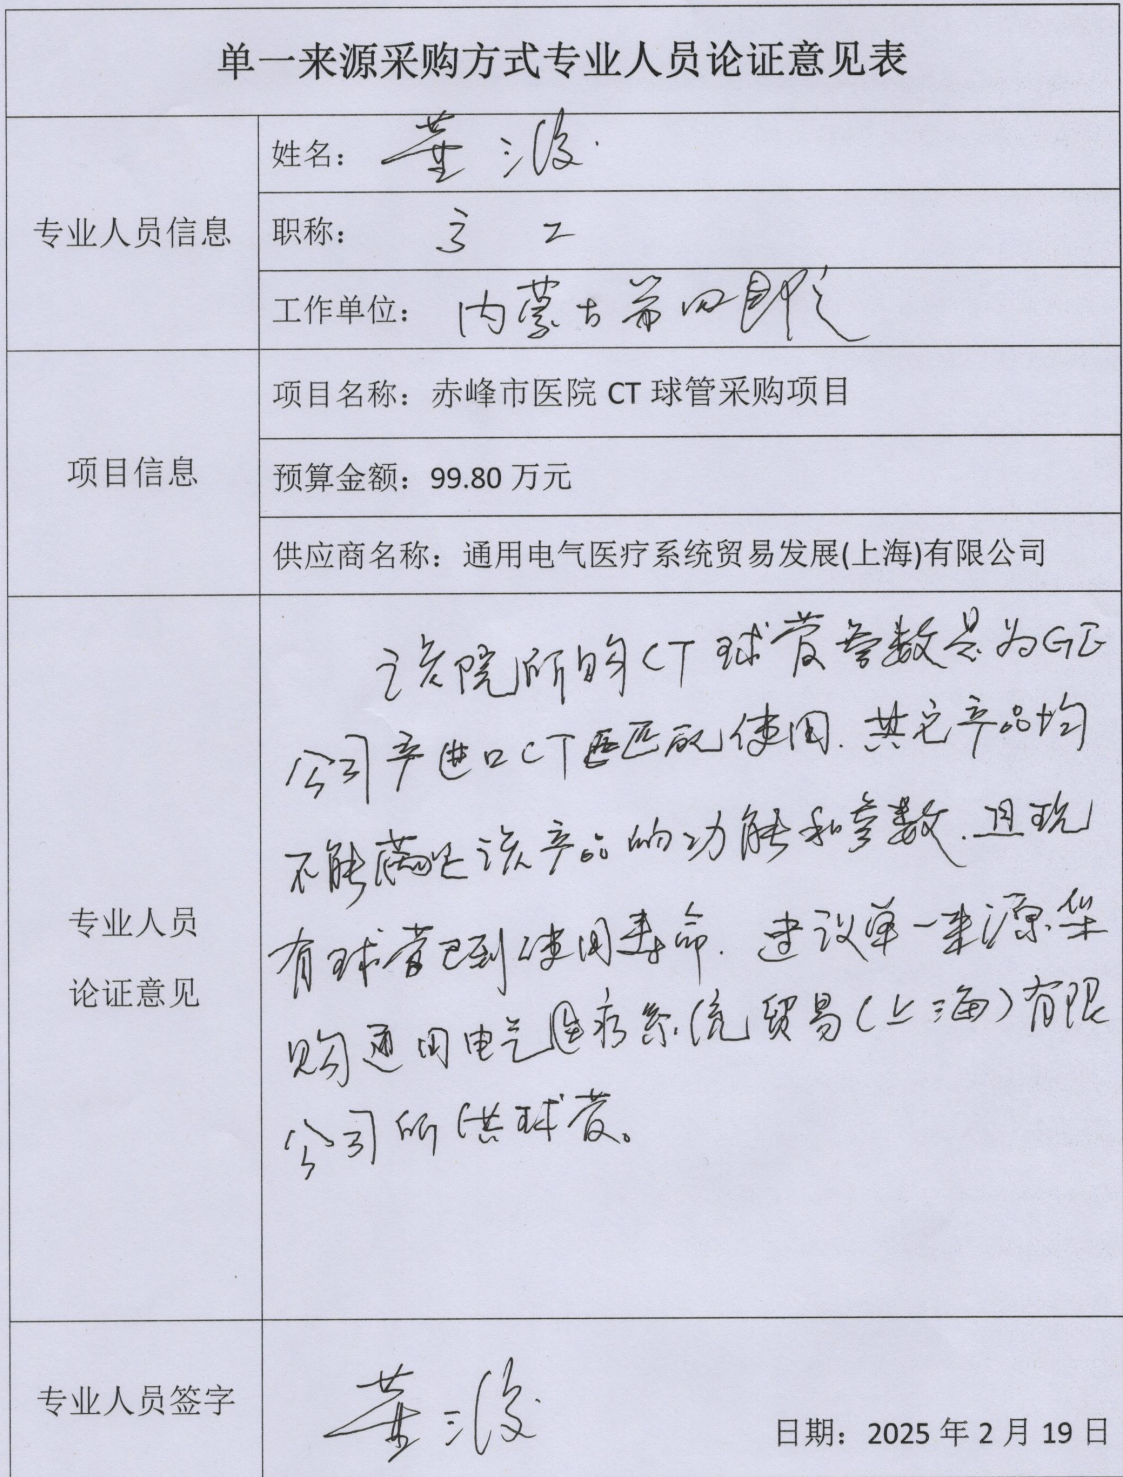 单一来源采购方式专业人员论证意见表
专业人员信息
姓名：董
职称：高工
工作单位：内蒙古第四
项目信息
项目名称：赤峰市医院 CT 球管采购项目
预算金额：99.80 万元
供应商名称：通用电气医疗系统贸易发展(上海)有限公司
专业人员
论证意见
该院所购CT球管参数是为GE
公司产进口CT匹配使用.其它产品均
不能满足该产品的功能和参数.且现
有球管已到使用寿命.建议单一来源采
购通用电气医疗系统贸易(上海)有限
公司所供球管。
专业人员签字
董
日期：2025 年 2 月 19 日